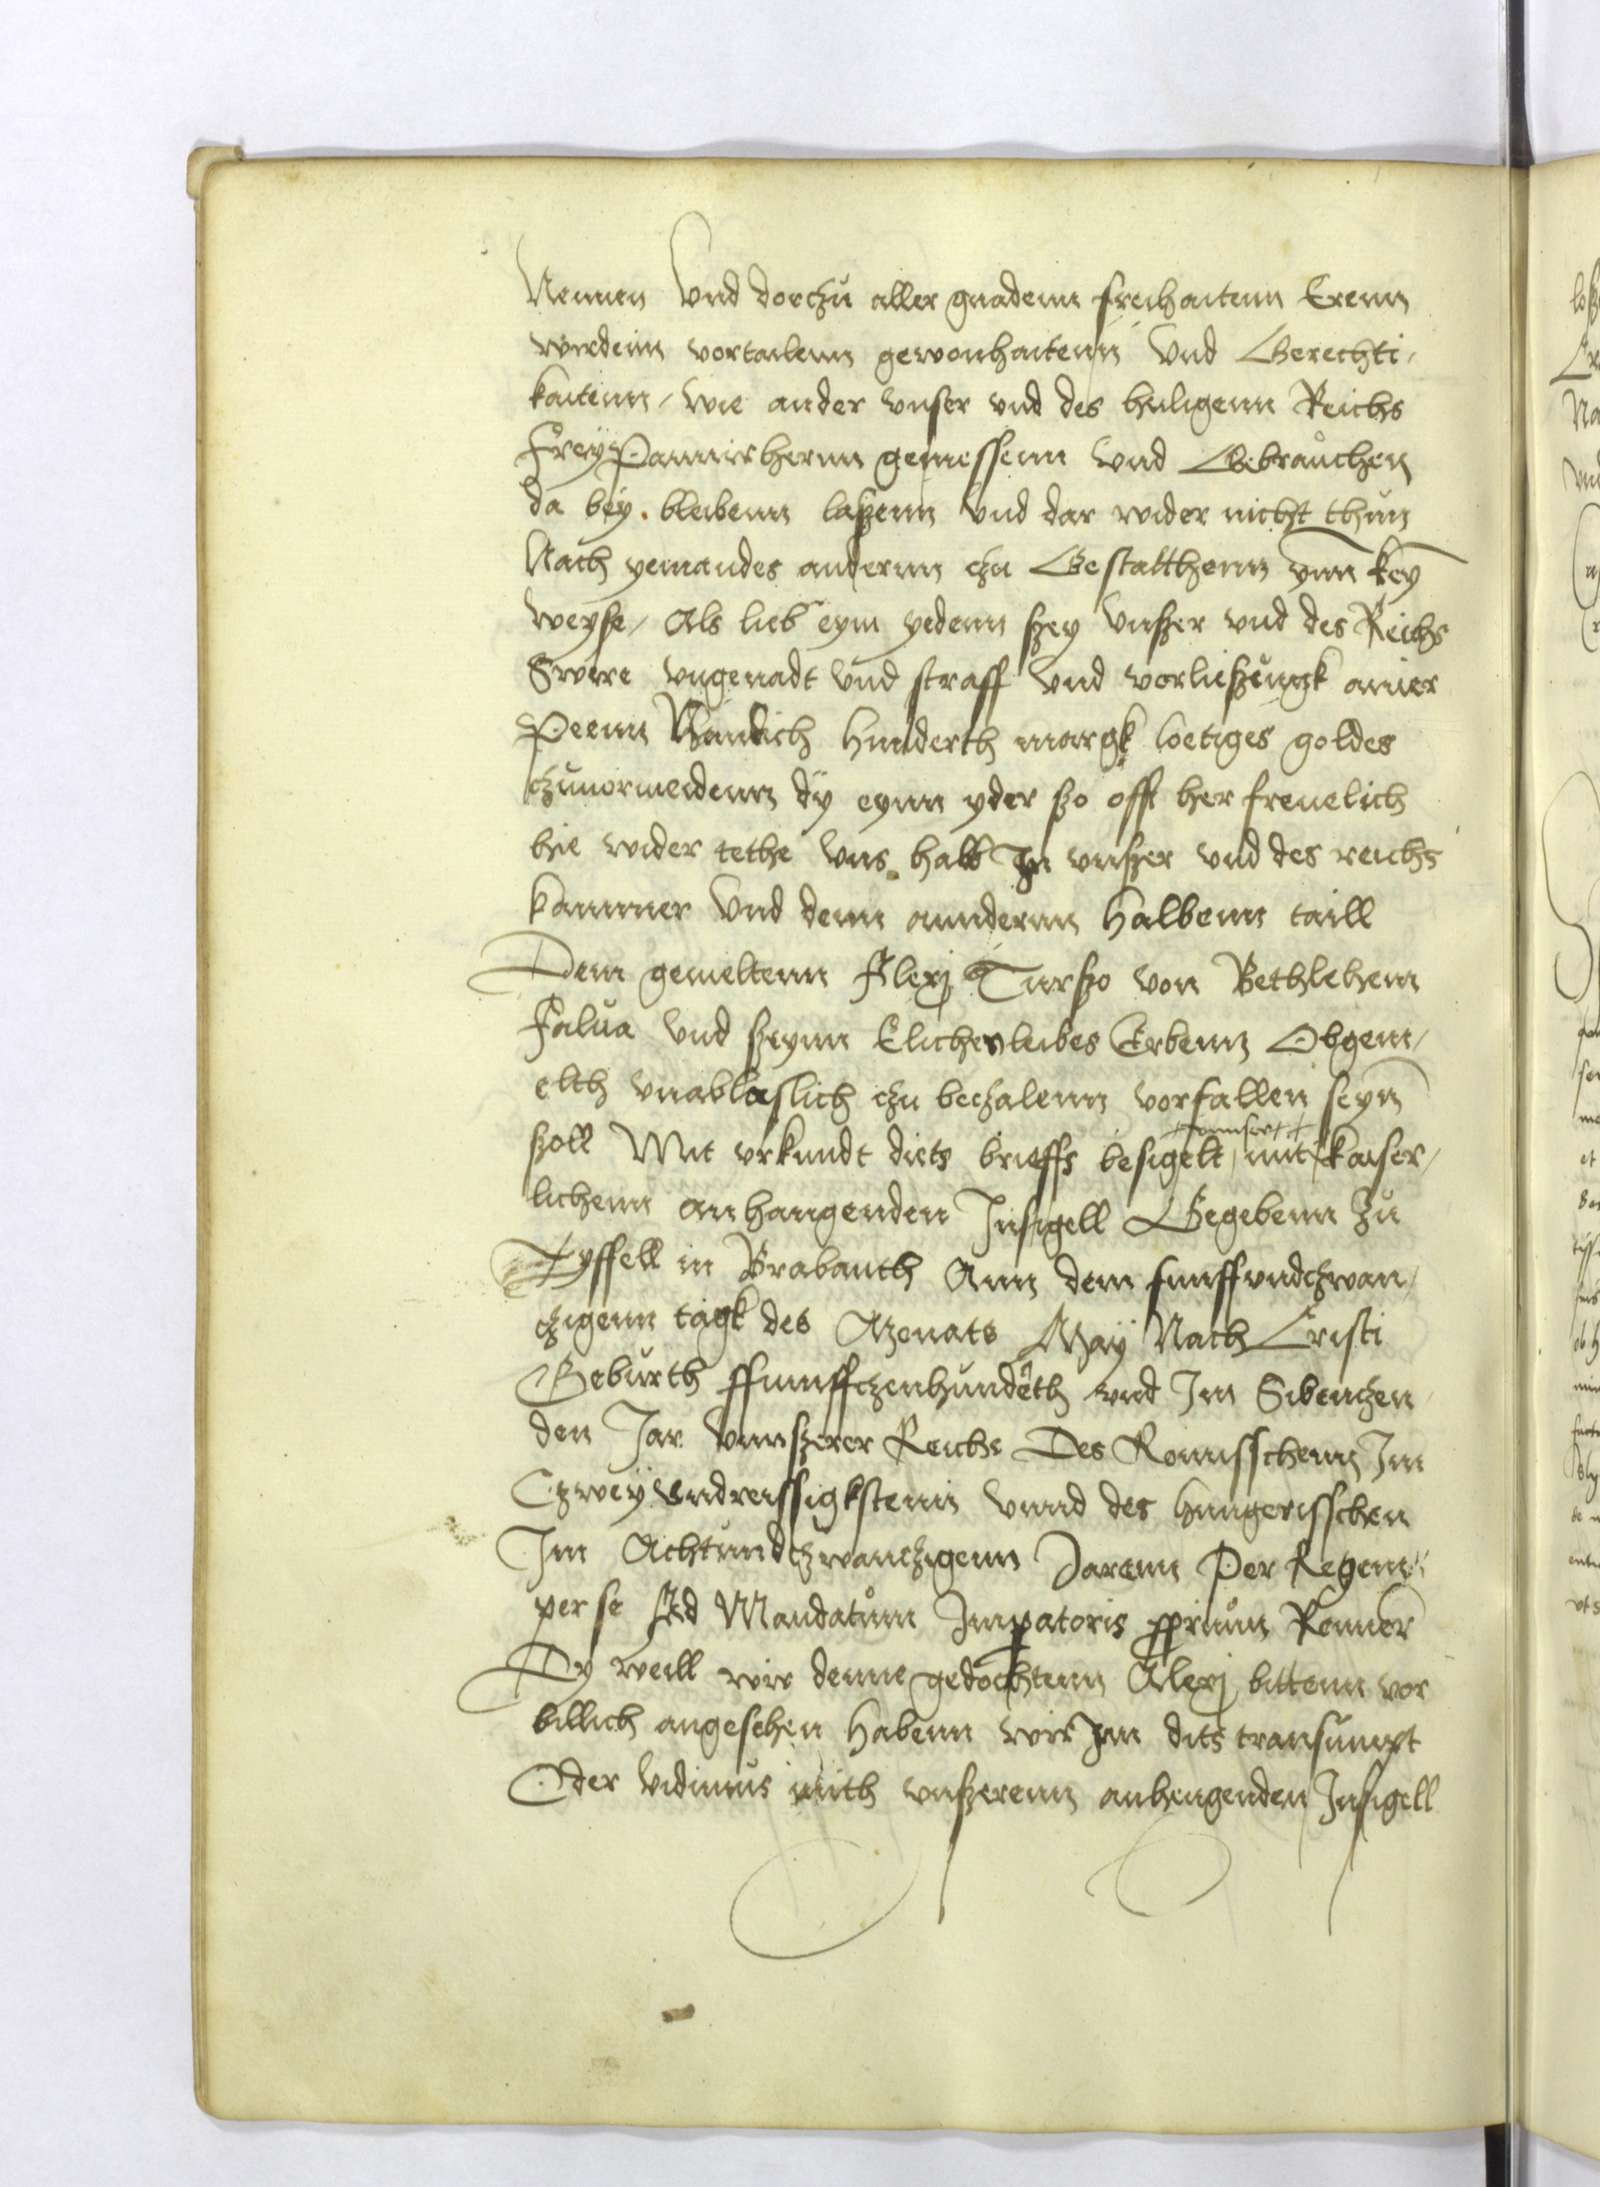 Nennen Vnd dorczu aller gnadenn freihaitenn Erenn
wirdeim vortailenn gewonhaitenn Vnd Gerechti-
kaitenn, wie ander vnser vnd des heiligenn Reichs
Frey Pannirhernn geniessenn Vnd Gebrauchen
da bey. bleibenn laszenn Vnd dar wider nicht thun
Nach yemandes andernn czu Gestatthenn ynn key
weyse, Als lieb eym yedenn szey Vnszer vnd des Reichs
Swere vngenadt Vnd straff Vnd vorlieszungk ainer
Peenn Hunderth margk loetiges goldes
czuuormeidenn dy eynn yder szo offt her freuelich
hie wider tethe Vns halb In vnszer vnd des reichs
kammer Vnd denn anndernn Halbenn taill
Dem gemeltenn Alexj Turszo von Bethlehem
Falua vnd szeynn Elichenn leibes Erbenn Obgem-
elth vnablaslich czu beczalenn vorfallen seyn
szoll Mit vrkundt diets brieffs besigelt, mit vnnser kaiser-
lichenn anhangenden Insigell Gegebenn zu
Tyffell in Brabanth Ann dem funffvndczwan-
czigenn tagk des Monats May Nach Cristi
Geburth ffunffczenhundeth vnd Im Sibenczen
den Jar Vnnszerer Reichs Des Romisschenn Im
Czwey vndreissigkstenn vnnd des hungerisschen
Im Achtundczwanczigenn Jarenn Per Regem
per se Ad Mandatum Impatoris pprium Renner
Dy weill wir denne gedochtenn Alexj bittenn vor
billich angesehen Habenn wir Im dits transumpt
Oder Vidimus mith vnszerenn anhengenden Insigell